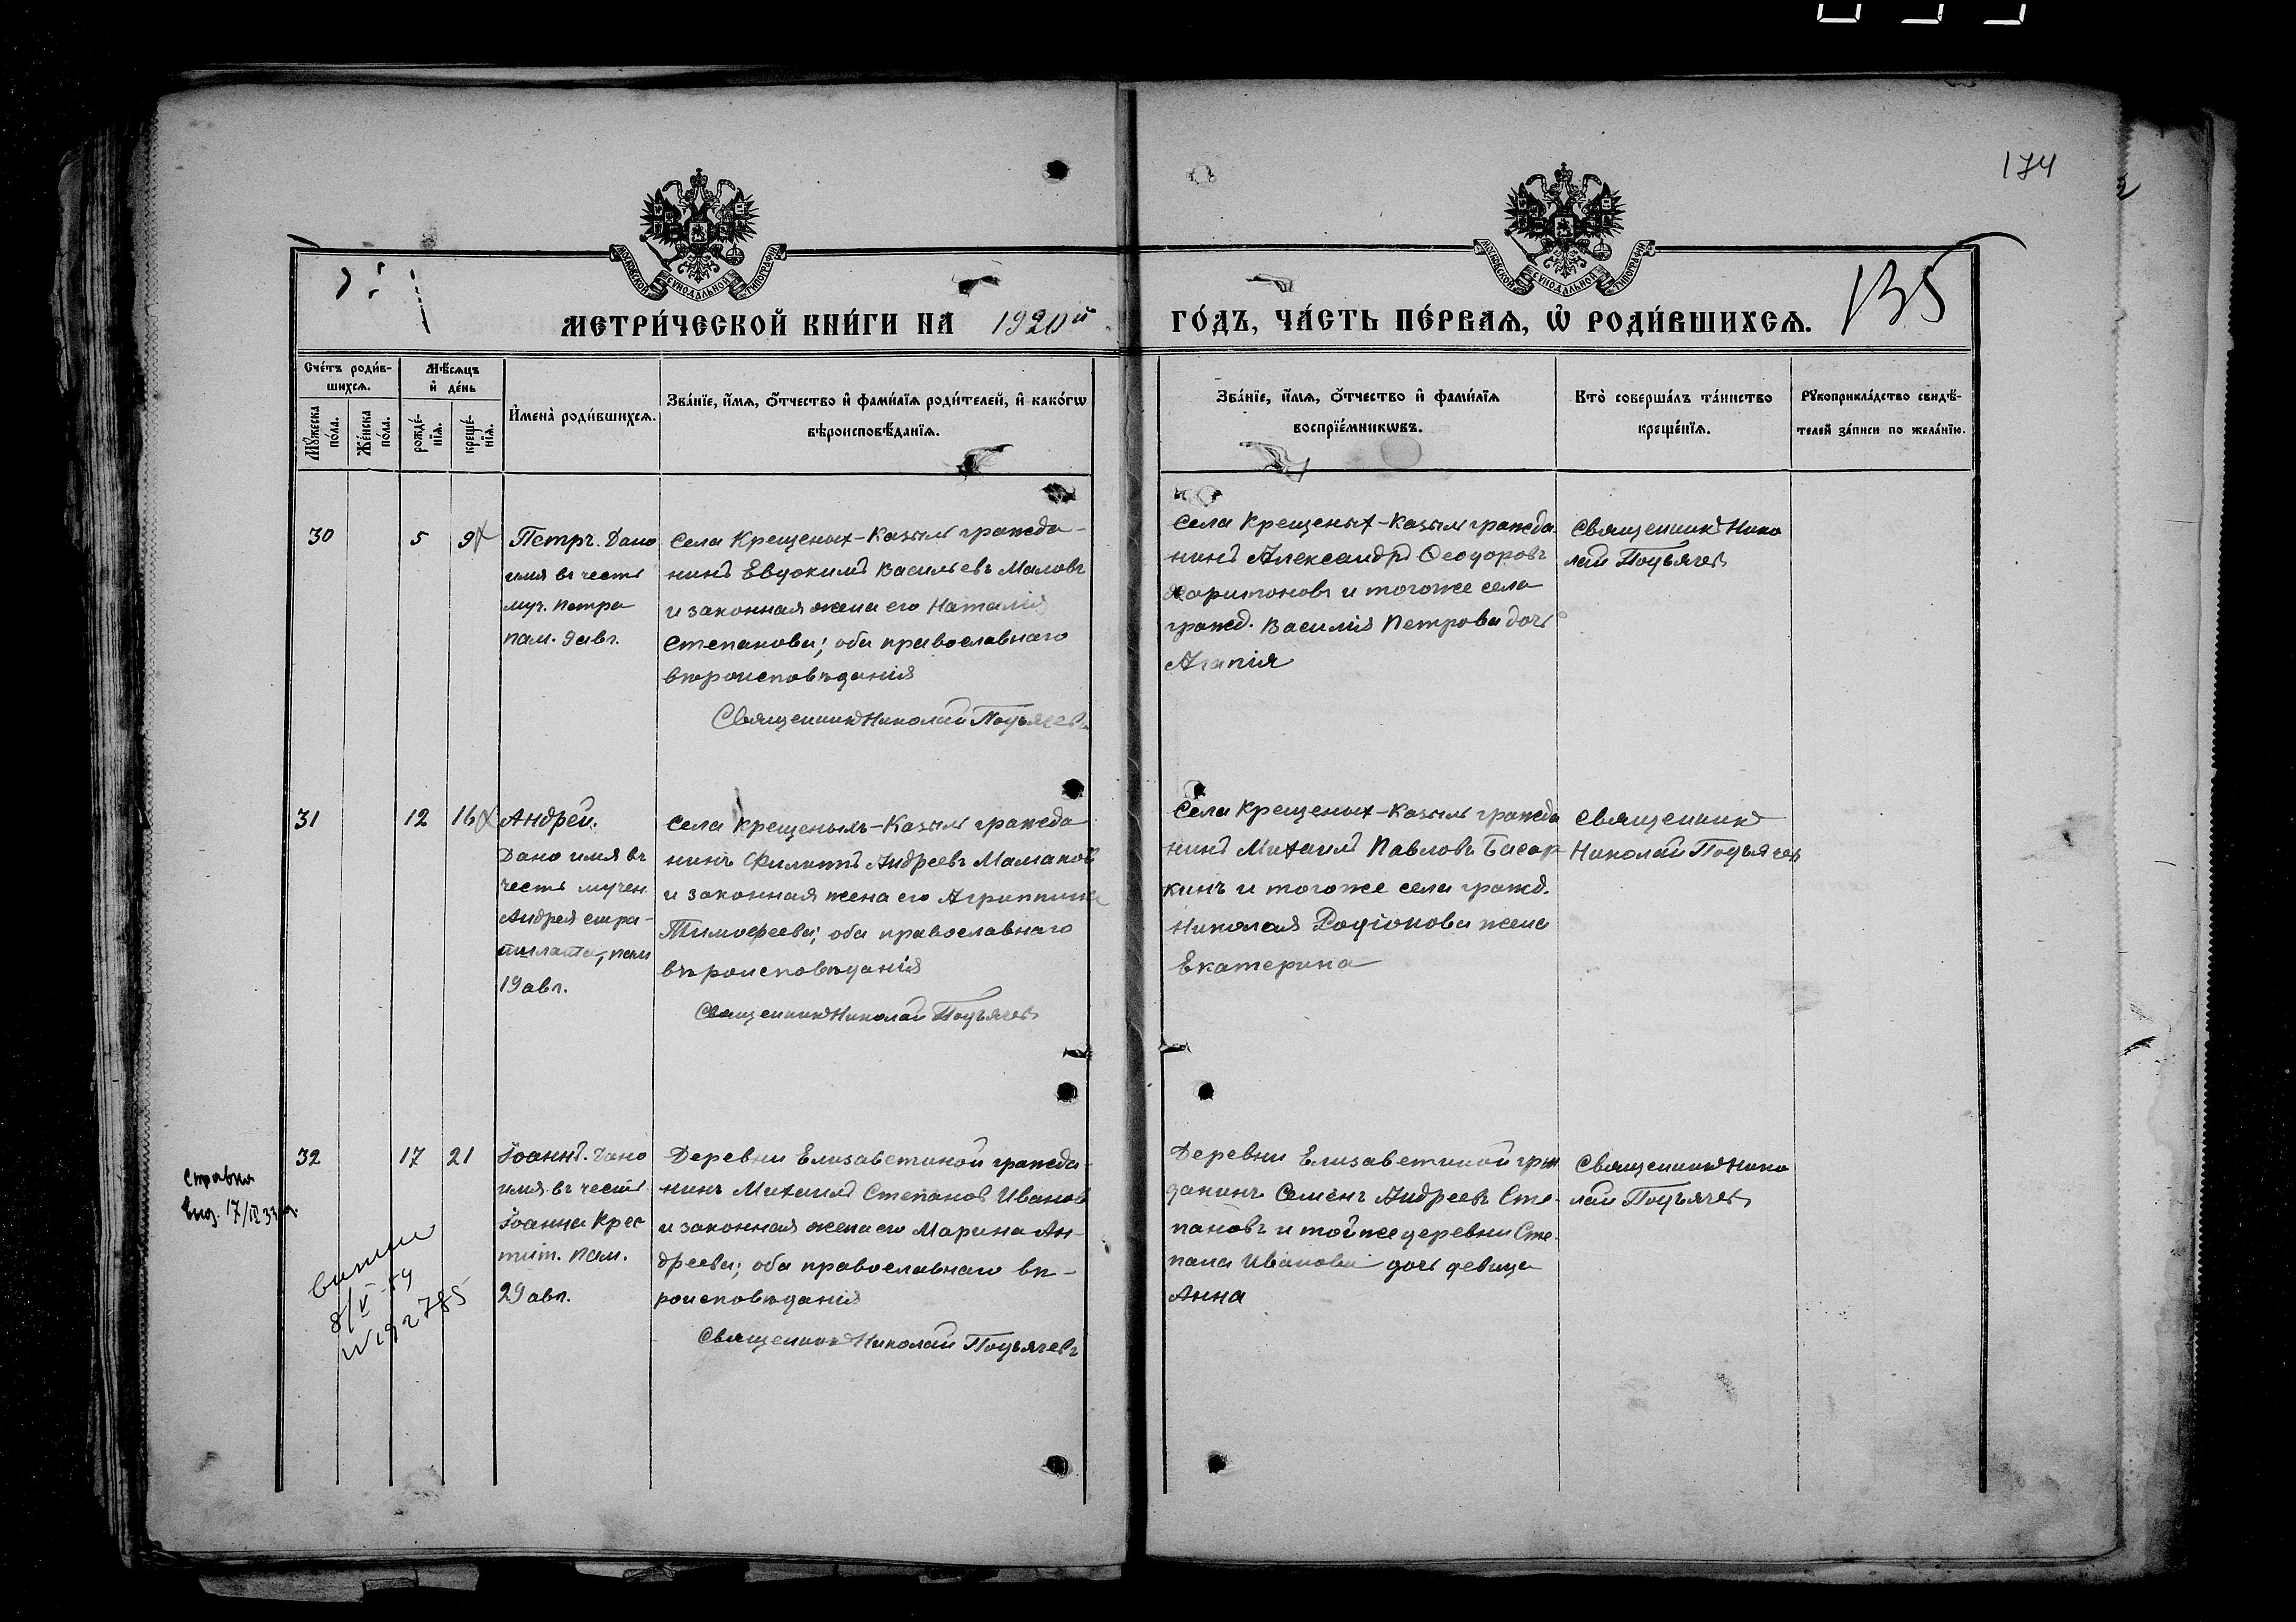 174
МОСКОВСКОЙ СѴНОДАЛЬНОЙ ТИПОГРАФІИ
МОСКОВСКОЙ СѴНОДАЛЬНОЙ ТИПОГРАФІИ
МЕТРИ́ЧЕСКОЙ КНИ́ГИ НА 1920й
ГО́ДЪ, ЧА́СТЬ ПЕ́РВАѦ, Ѽ РОДИ́ВШИХСѦ.
135
Сче́тъ роди́в-
шихсѧ.
Мꙋжеска
по́ла.
Же́нска
по́ла.
Мѣ́сѧцъ
и҆ де́нь
рожде́-
нїѧ.
креще́-
нїѧ.
И҆мена̀ роди́вшихсѧ.
Зва́нїе, и҆́мѧ, ѻ҆́тчество и҆ фами́лїѧ роди́телей, и҆ како́гѡ
вѣроисповѣ́данїѧ.
Зва́нїе, и҆́мѧ, ѻ҆́тчество и҆ фами́лїѧ
воспрїе́мникѡвъ.
Кто̀ соверша́лъ та́инство
креще́нїѧ.
Рꙋкоприкла́дство свидѣ́-
телей за́писи по жела́нїю.
30
5
9
Петръ. Дано
имя въ честь
муч. Петра
пам. 9 авг.
Села Крещеных-Казыл гражда-
нинъ Евдокимъ Васильевъ Маловъ
и законная жена его Наталія
Степанова; оба православнаго
вѣроисповѣданія
Священникъ Николай Подъячевъ
Села Крещеных-Казыл гражда
нинъ Александръ Ѳеодоровъ
Харитоновъ и тогоже села
гражд. Василія Петрова дочь
Агапія
Священникъ Нико
лай Подъячевъ
31
12
16
Андрей.
Дано имя въ
честь мучен.
Андрея стра-
тилата, пам
19 авг.
Села Крещеныхъ-Казыл гражда
нинъ Филиппъ Андреевъ Мамаков
и законная жена его Агриппина
Тимоѳеева; оба православнаго
вѣроисповѣданія
Священникъ Николай Подъячевъ
Села Крещеных-Казыл гражда
нинъ Михаилъ Павловъ Бисер
кинъ и тогоже села гражд.
Николая Родіонова жена
Екатерина
Священникъ
Николай Подъячевъ
32
17
21
Іоаннъ. Дано
имя въ честь
Іоанна Крес
тит. пам.
29 авг.
Деревни Елизаветиной гражда-
нинъ Михаилъ Степановъ Ивановъ
и законная жена его Марина Ан-
дреева; оба православнаго вѣ-
роисповѣданія
Священникъ Николай Подъячевъ
Деревни Елизаветиной граж
данинъ Семенъ Андреевъ Сте-
пановъ и тойже деревни Сте-
пана Иванова дочь девица
Анна
Священникъ Нико
лай Подъячевъ
Справка
8/V-54